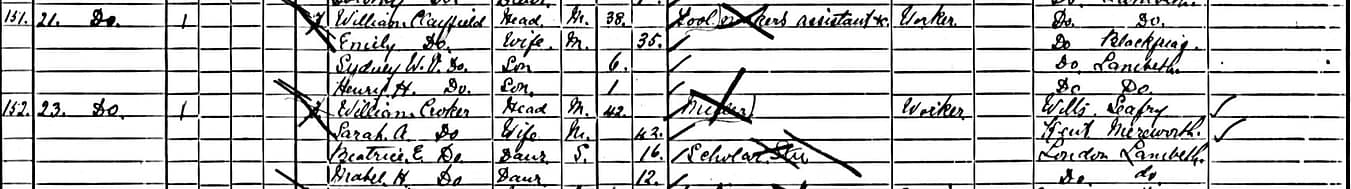 151. 21. Do. 1 William Clayfield Head M. 38. Tool assistant &c. Worker Do. Do.
Emily Do. Wife M. 35. Do Blackfriars
Sydney W. Do. Son 6. Do. Lambeth.
Henry H. Do. Son. 1 Do Do.
152. 23. Do. 1 William Croker Head M. 42. Worker Wilts.
Sarah A. Do Wife M. 42. Kent Mereworth.
Beatrice E. Do Daur S. 16. Scholar London Lambeth.
Mabel H. Do Daur 12. Do. do